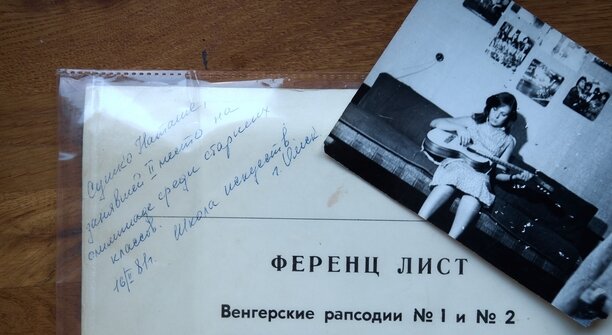 Сушко Наташе,
занявшей II место на
олимпиаде среди старших
классов. Школа искусств
16/II 81г. г. Омск
ФЕРЕНЦ ЛИСТ
Венгерские рапсодии №1 и №2